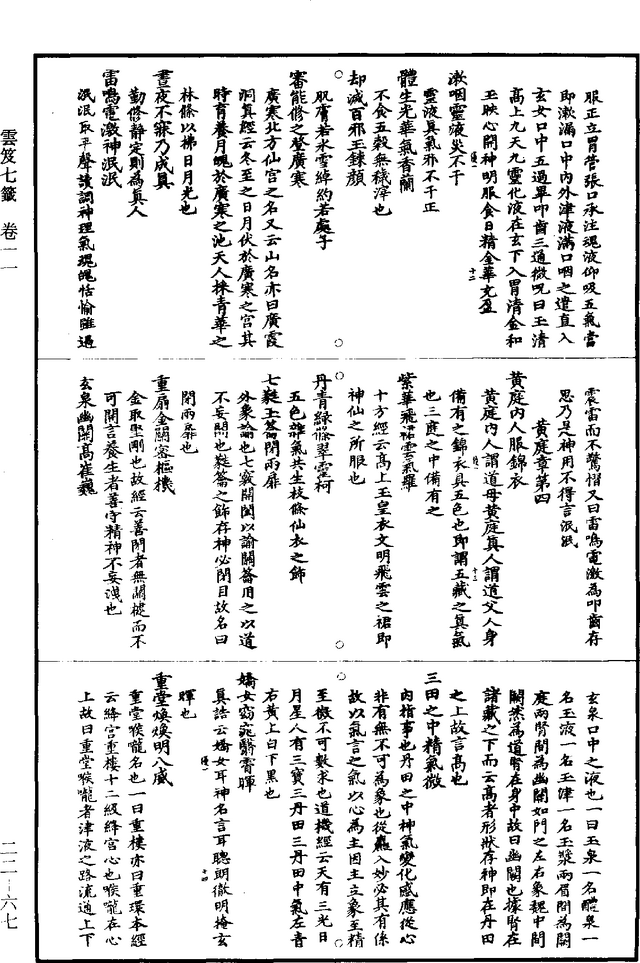 服正立胃管張口承注魂液仰吸五氣當
即漱漏口中內外津液滿口咽之遣直入
玄女口中五過畢叩齒三通微呪曰玉清
高上九天九靈化液在玄下入胃清金和
玉映心開神明服食日精金華充盈
漱咽靈液災不干
靈液真氣邪不干正
體生光華氣香蘭
不食五穀無穢滓也
却滅百邪玉鍊顏
肌膚若冰雪綽約若處子
審能修之登廣寒
廣寒北方仙宮之名又云山名亦曰廣霞
洞真經云冬至之日月伏於廣寒之宮其
時育養月魄於廣寒之池天人採青華之
林條以拂日月光也
晝夜不寐乃成真
勤修靜定則為真人
雷鳴電激神泯泯
泯泯取平聲讀詞神理氣魂魄恬愉雖過
震雷而不驚慴又曰雷鳴電激為叩齒存
思乃是神用不得言泯泯
黃庭章第四
黃庭內人服錦衣
黃庭內人謂道母黃庭真人謂道父人身
備有之錦衣具五色也即謂五藏之真氣
也三庭之中備有之
紫華飛裙雲氣羅
十方經云高上玉皇衣文明飛雲之裙即
神仙之所服也
丹青綠條翠靈柯
五色雜氣共生枝條仙衣之飾
七蕤玉籥閉兩扉
外象諭也七竅開闔以諭關籥用之以道
不妄開也蕤籥之飾存神必閉目故名曰
閉兩扉也
重扇金關密樞機
金取堅剛也故經云善閉者無關楗而不
可開言養生者善守精神不妄洩也
玄泉幽闕高崔巍
玄泉口中之液也一曰玉泉一名醴泉一
名玉液一名玉津一名玉漿兩眉間為闕
庭兩腎間為幽闕如門之左右象魏中間
闕然為道腎在身中故曰幽闕也據腎在
諸藏之下而云高者形狀存神即在丹田
之上故言高也
三田之中精氣微
內指事也丹田之中神氣變化感應從心
非有無不可為象也從麤入妙必其有係
故以氣言之氣以心為主因主立象至精
至微不可數求也道機經云天有三光日
月星人有三寶三丹田三丹田中氣左青
右黃上白下黑也
嬌女窈窕翳霄暉
真誥云嬌女耳神名言耳聰朗徹明掩玄
暉也
重堂煥煥明八威
重堂喉嚨名也一曰重樓亦曰重環本經
云絳宮重樓十二級絳宮心也喉嚨在心
上故曰重堂喉嚨者津液之路流通上下
雲笈七籤　卷一一
二二—六七